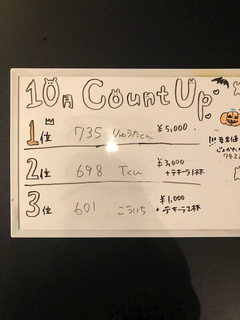 10月 Count Up
1位 735 りゅうたくん ¥5,000
2位 698 Tくん ¥3,000
+テキーラ1杯
3位 601 こういち ¥1,000
+テキーラ2杯
!!!